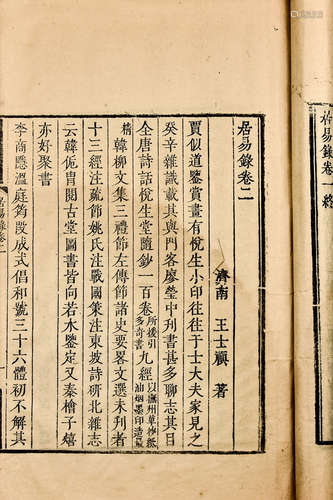 居易錄卷二
濟南 王士禛 著
賈似道鑒賞畫有悅生小印往往于士大夫家見之
癸辛雜識載其與門客廖瑩中刋書甚多聊志其目
全唐詩話悅生堂隨鈔一百卷所援引多奇書九經以撫州草抄紙油烟墨印造最
精韓柳文集三禮節左傳節諸史要畧文選未刋者
十三經注疏節姚氏注戰國策注東坡詩研北雜志
云韓侂冑閱古堂圖書皆向若水鑒定又秦檜子熺
亦好聚書
李商隱溫庭筠段成式倡和號三十六體初不解其
居易錄卷二
居易錄卷 終